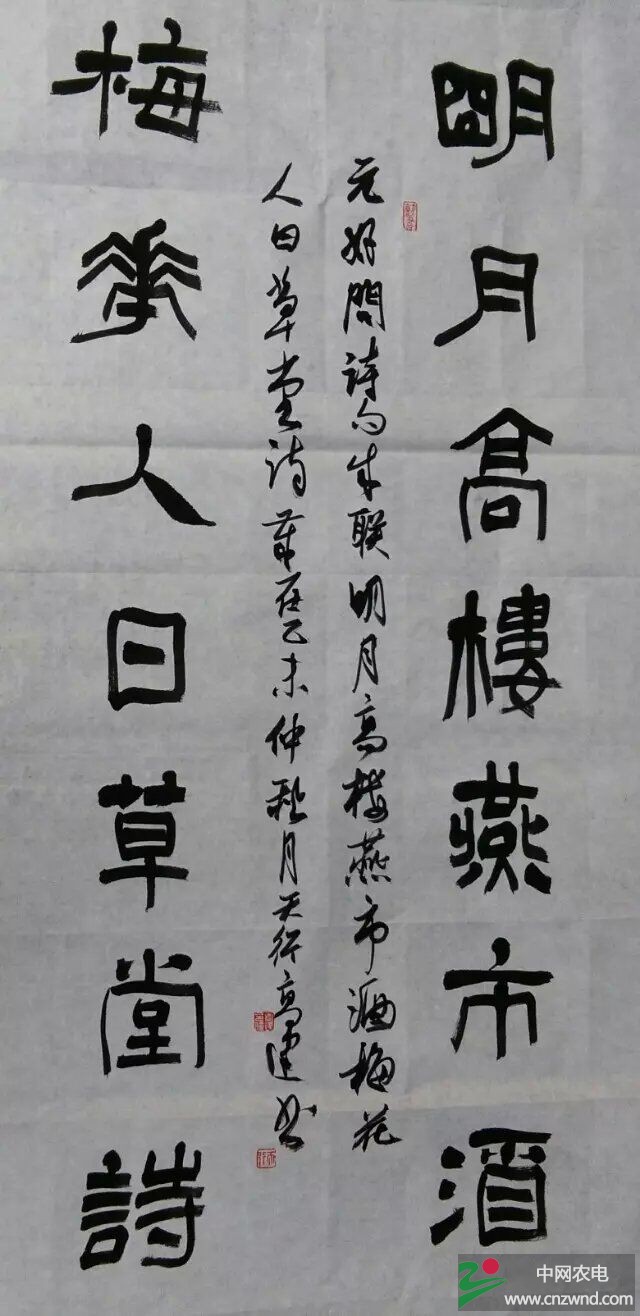 明月高樓燕市酒
元好問詩句成联明月高楼燕市酒梅花
人日草堂诗歲在乙未仲秋月天行高建书
梅華人日草堂詩
中网农电
www.cnzwnd.com